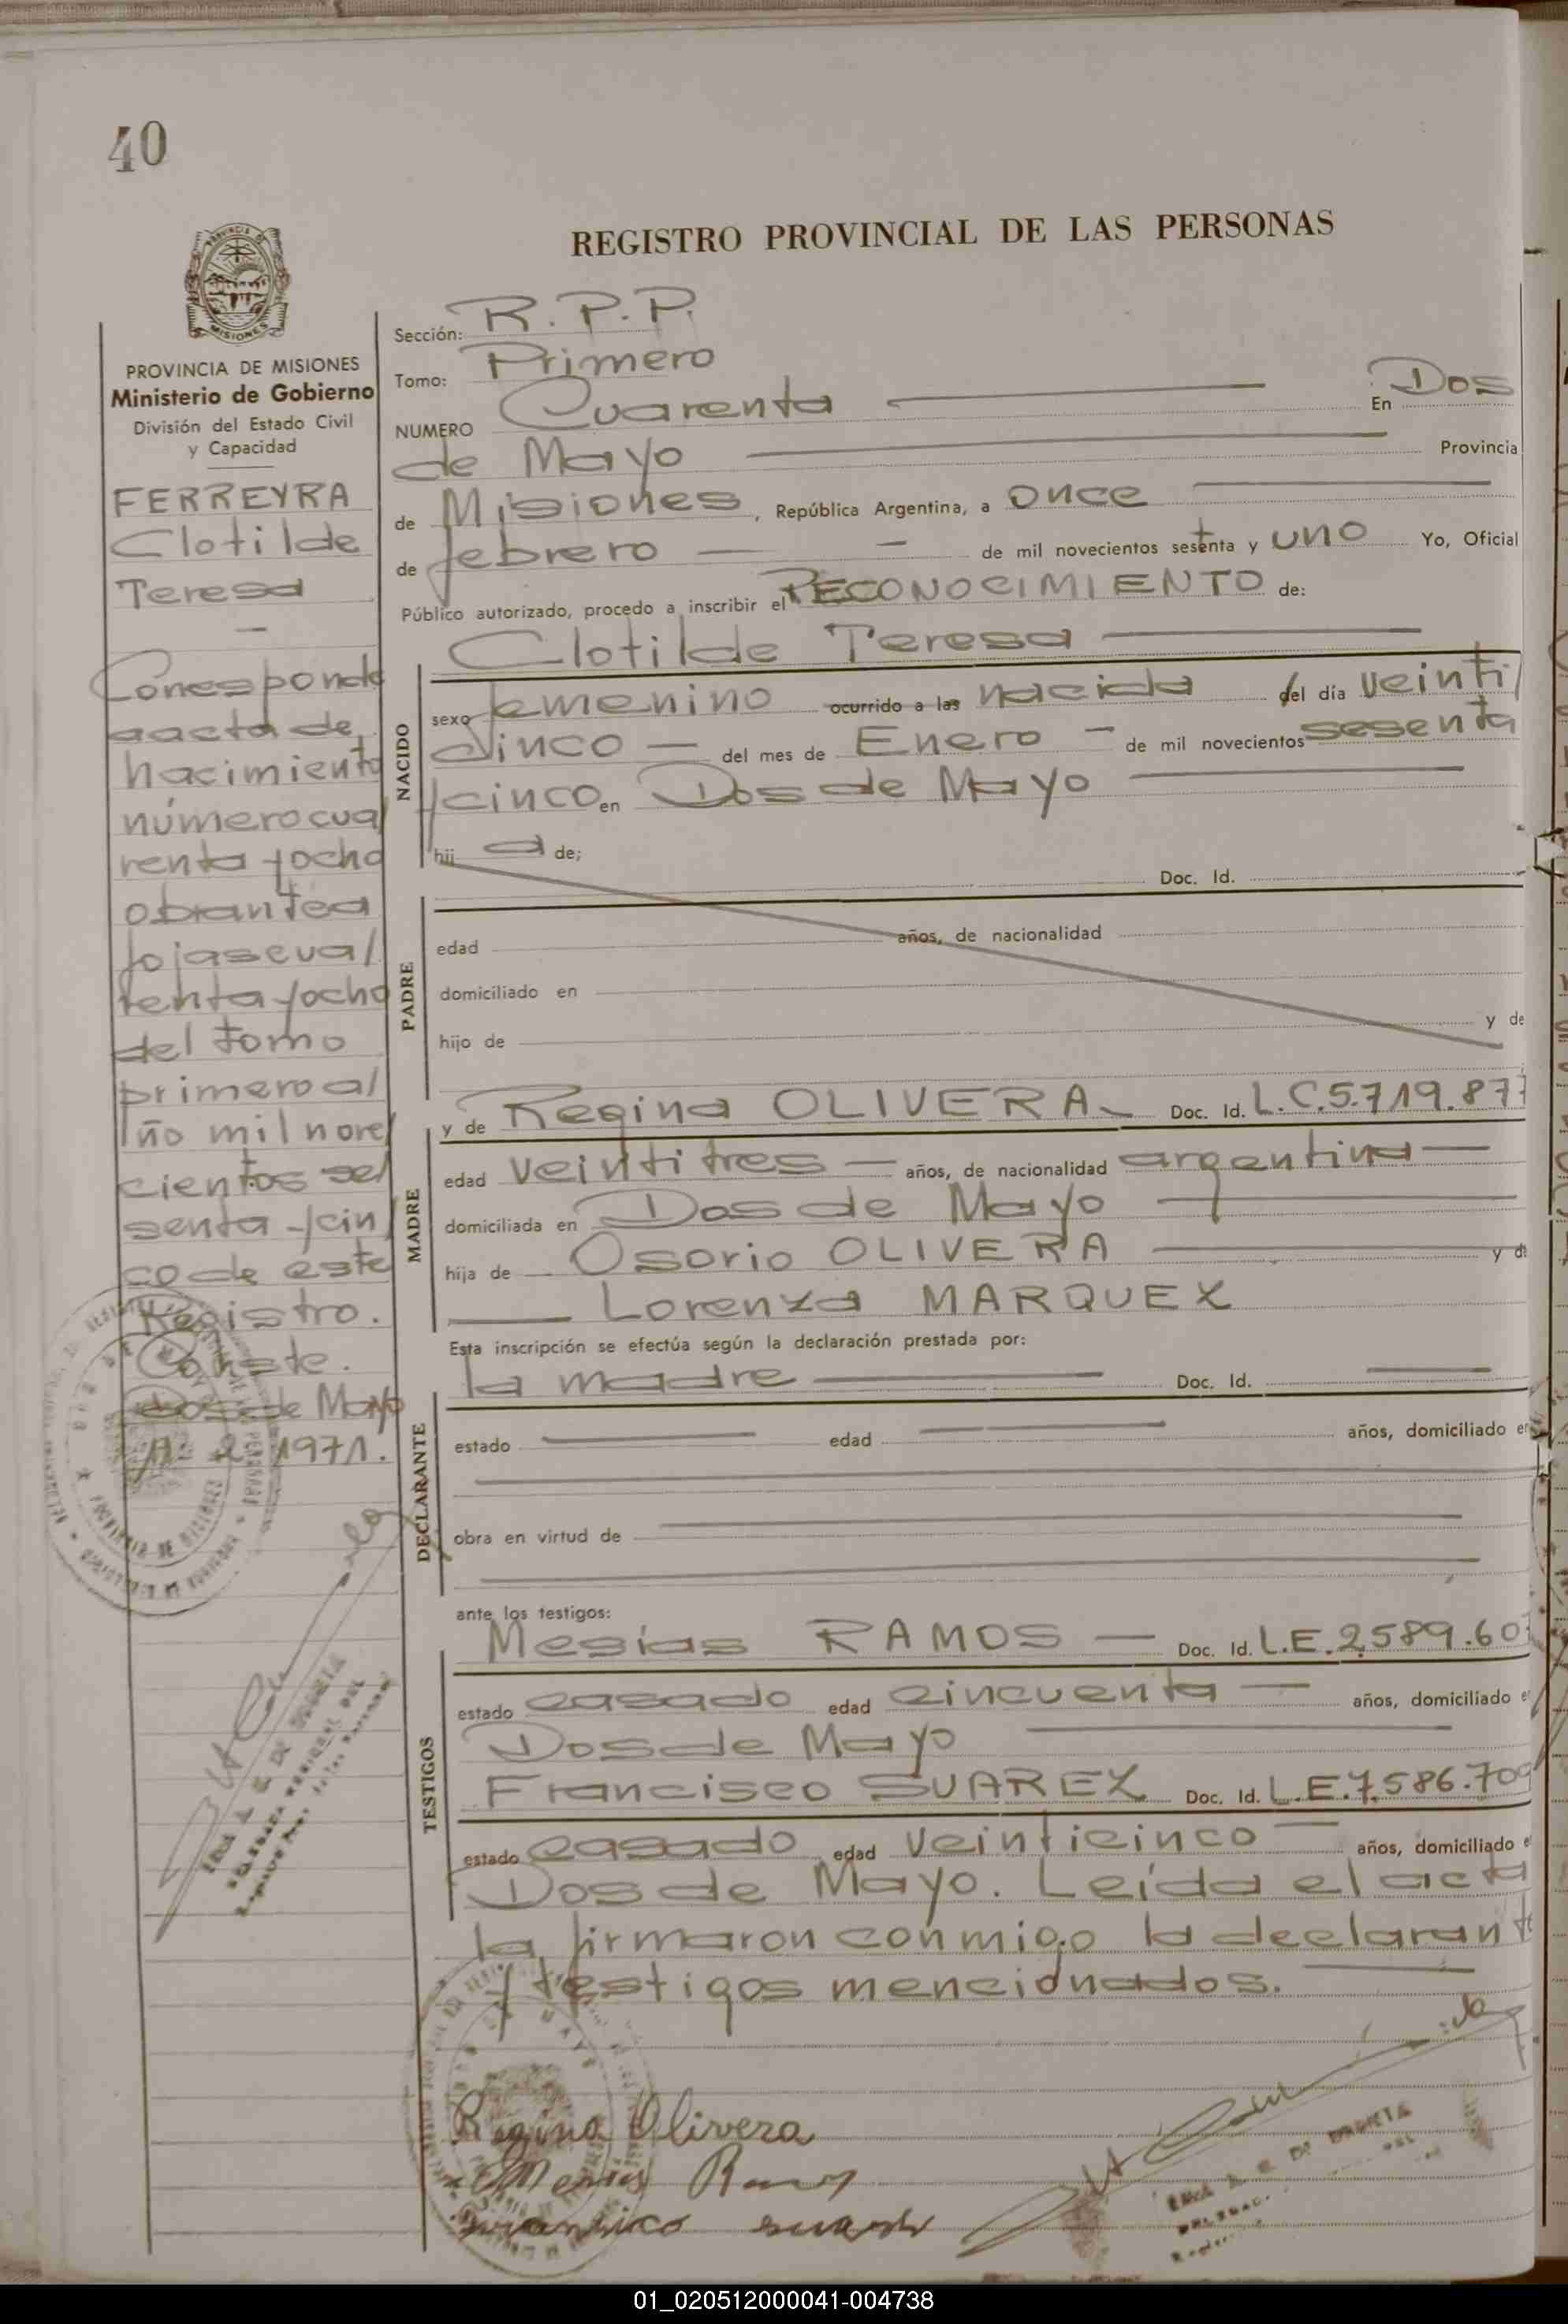 40
REGISTRO PROVINCIAL DE LAS PERSONAS
MISIONES
PROVINCIA DE MISIONES
Ministerio de Gobierno
División del Estado Civil
y Capacidad
FERREYRA
Clotilde
Teresa
Corresponde
a acta de
nacimiento
número cua/
renta y ocho
obrante a
fojas cua/
renta y ocho
del tomo
primero a/
ño mil nove/
cientos se/
senta y cin/
co de este
Registro.
Conste.
Dos de Mayo
11-2-1971.
Sección: R.P.P.
Tomo: Primero
NUMERO Cuarenta En Dos
de Mayo Provincia
de Misiones, República Argentina, a once
de febrero de mil novecientos setenta y uno Yo, Oficial
Público autorizado, procedo a inscribir el RECONOCIMIENTO de:
Clotilde Teresa
NACIDO
sexo femenino ocurrido a las nacida del día veinti/
cinco del mes de Enero de mil novecientos sesenta
y cinco en Dos de Mayo
hij a de;
Doc. Id.
PADRE
edad años, de nacionalidad
domiciliado en
hijo de y de
MADRE
y de Regina OLIVERA Doc. Id. L.C.5.719.877
edad veintitres años, de nacionalidad argentina
domiciliada en Dos de Mayo
hija de Osorio OLIVERA y de
Lorenza MARQUEZ
Esta inscripción se efectúa según la declaración prestada por:
la madre Doc. Id.
DECLARANTE
estado edad años, domiciliado en
obra en virtud de
ante los testigos:
Mesías RAMOS Doc. Id. L.E.2.589.60
TESTIGOS
estado casado edad cincuenta años, domiciliado e
Dos de Mayo
Francisco SUAREZ Doc. Id. L.E.7.586.709
estado casado edad veinticinco años, domiciliado e
Dos de Mayo. Leída el acta
la firmaron conmigo la declarant
y testigos mencionados.
Regina Olivera
Mesias Ramos
Francisco suarez
01_020512000041-004738